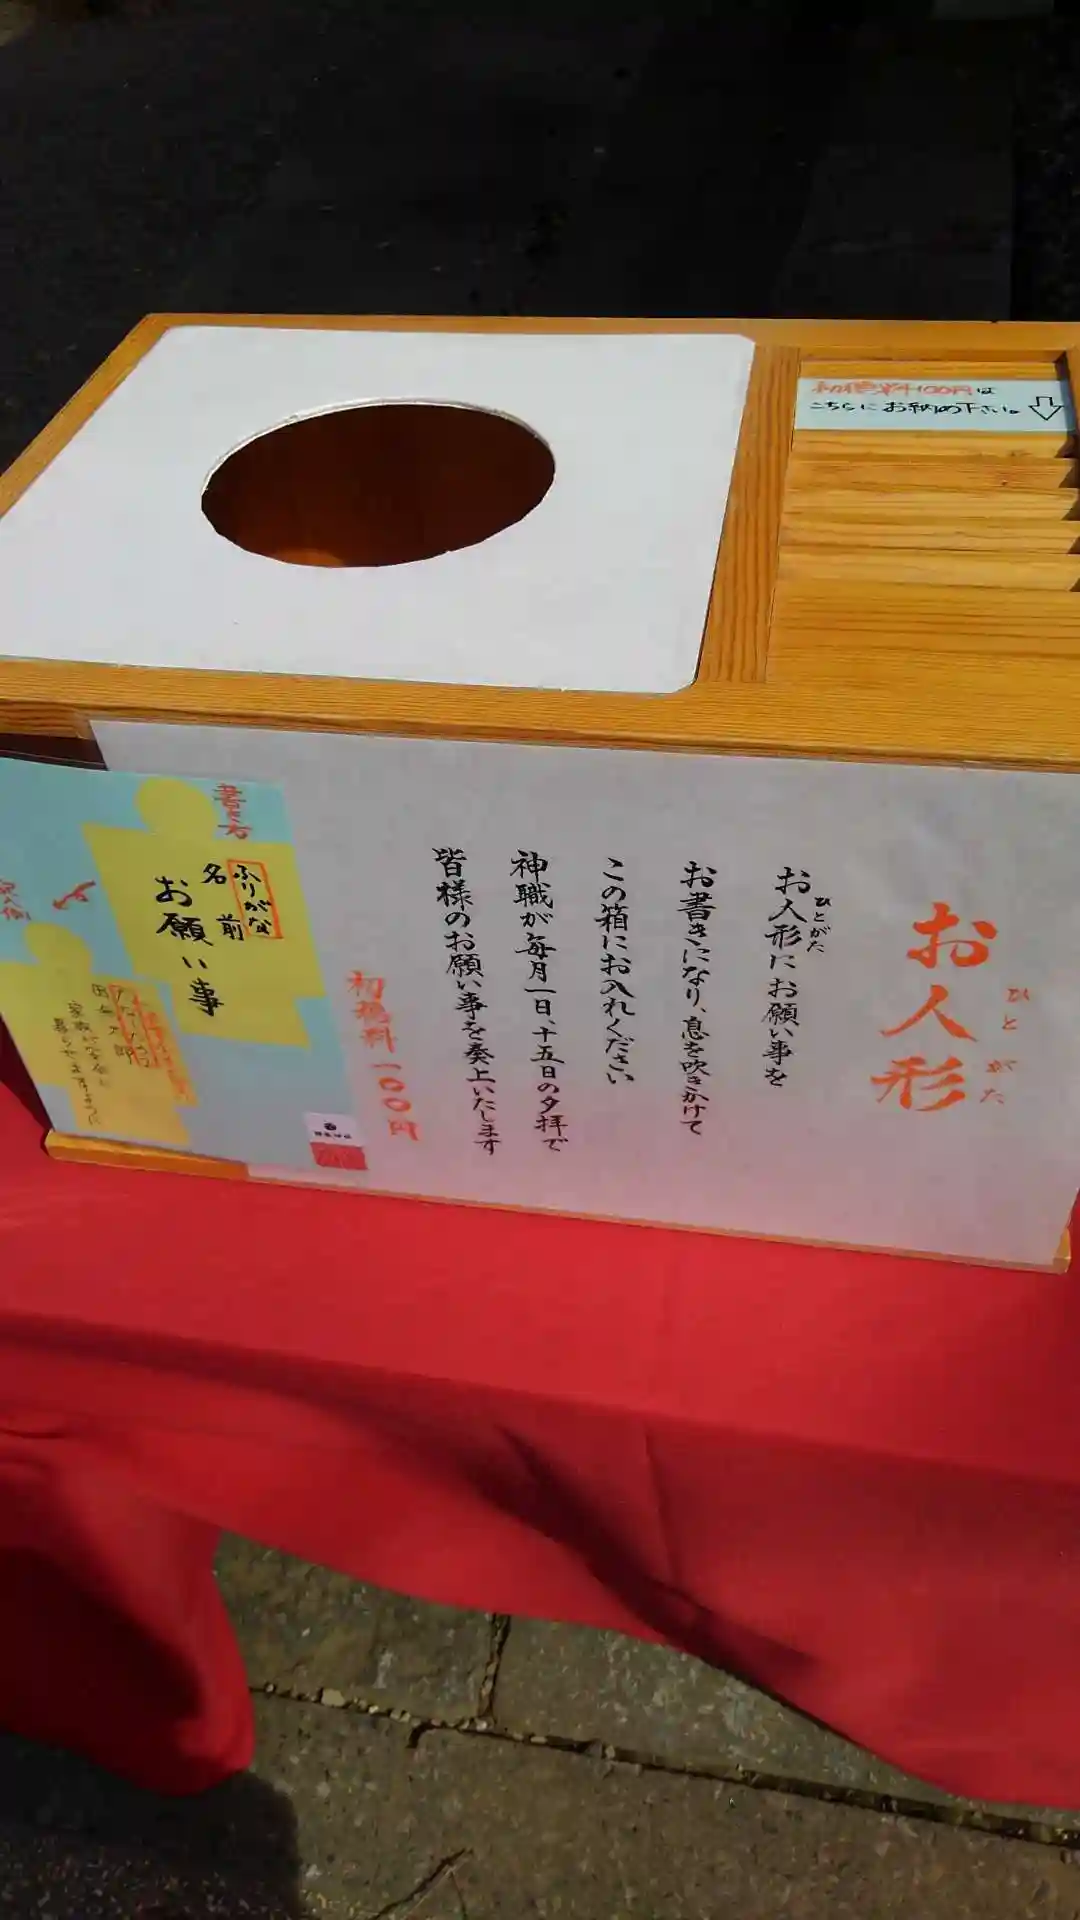 初穂料100円は
こちらにお納め下さい。
お人形
ひとがた
お人形にお願い事を
ひとがた
お書きになり、息を吹きかけて
この箱にお入れください
神職が毎月一日、十五日の夕拝で
皆様のお願い事を奏上いたします
初穂料一〇〇円
書き方
ふりがな
名前
お願い事